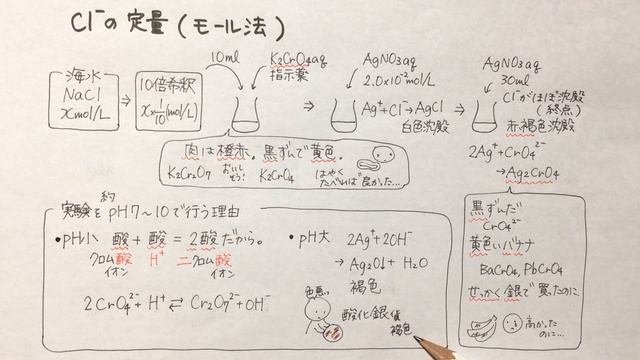 Cl⁻の定量(モール法)
海水
NaCl
xmol/L
⇒
10倍希釈
x×1/10(mol/L)
10ml
K2CrO4aq
指示薬
⇒
AgNO3aq
2.0×10⁻²mol/L
Ag⁺+Cl⁻→AgCl
白色沈殿
⇒
AgNO3aq
30ml
Cl⁻がほぼ沈殿
(終点)
赤褐色沈殿
2Ag⁺+CrO4²⁻
→Ag2CrO4
肉は橙赤。黒ずんで黄色。
K2Cr2O7 おいしそう! K2CrO4 はやくたべれば良かった…
実験を約pH7~10で行う理由
・pH小 酸+酸=2酸だから。
クロム酸イオン H⁺ 二クロム酸イオン
2CrO4²⁻+H⁺⇄Cr2O7²⁻+OH⁻
・pH大 2Ag⁺+2OH⁻
→Ag2O↓+H2O
褐色
色悪い
酸化銀
褐色
黒ずんだ
CrO4²⁻
黄色いバナナ
BaCrO4, PbCrO4
せっかく銀で買ったのに
高かったのに…